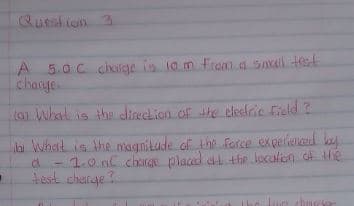 Question 3
A 5.0 C charge is 10 m from a small test
charge.
(a) What is the direction of the electric field ?
(b) What is the magnitude of the force experienced by
a - 1.0 nC charge placed at the location of the
test charge?